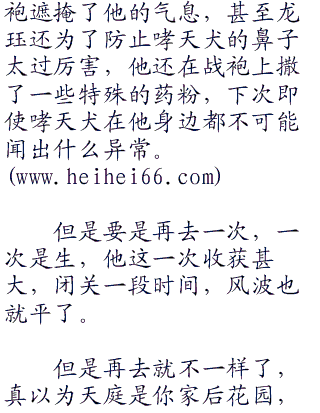 袍遮掩了他的气息，甚至龙
珏还为了防止哮天犬的鼻子
太过厉害，他还在战袍上撒
了一些特殊的药粉，下次即
使哮天犬在他身边都不可能
闻出什么异常。
(www.heihei66.com)
但是要是再去一次，一
次是生，他这一次收获甚
大，闭关一段时间，风波也
就平了。
但是再去就不一样了，
真以为天庭是你家后花园，